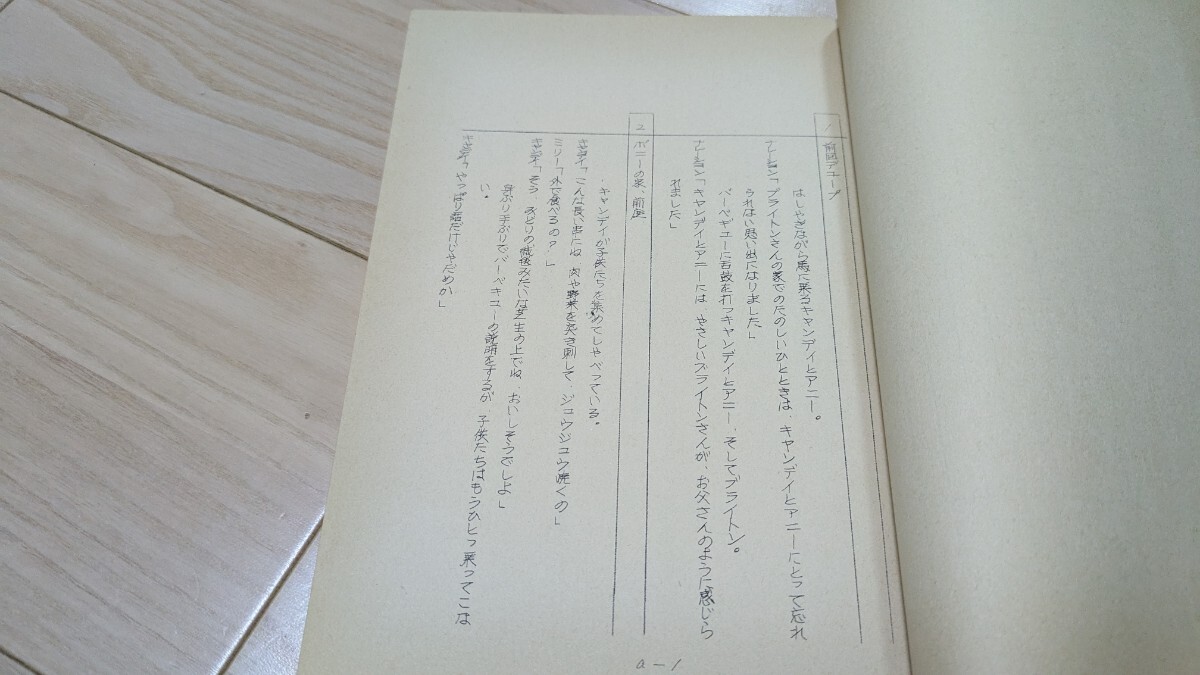 1 前回デュープ
はしゃぎながら馬に乗るキャンディとアニー。
ナレーション「ブライトンさんの家でのたのしいひとときは、キャンディとアニーにとって忘れ
られない思い出になりました」
バーベキューに舌鼓を打つキャンディとアニー、そしてブライトン。
ナレーション「キャンディとアニーには、やさしいブライトンさんが、お父さんのように感じら
れました」
2 ポニーの家、前庭
キャンディが子供たちを集めてしゃべっている。
キャンディ「こんな長い串にね、肉や野菜を突き刺して、ジュウジュウ焼くの」
ミリー「外で食べるの？」
キャンディ「そう、みどりの絨毯みたいな芝生の上でね、おいしそうでしょ」
身ぶり手ぶりでバーベキューの説明をするが、子供たちはもうひとつ乗ってこな
い。
キャンディ「やっぱり話だけじゃだめか」
a-1